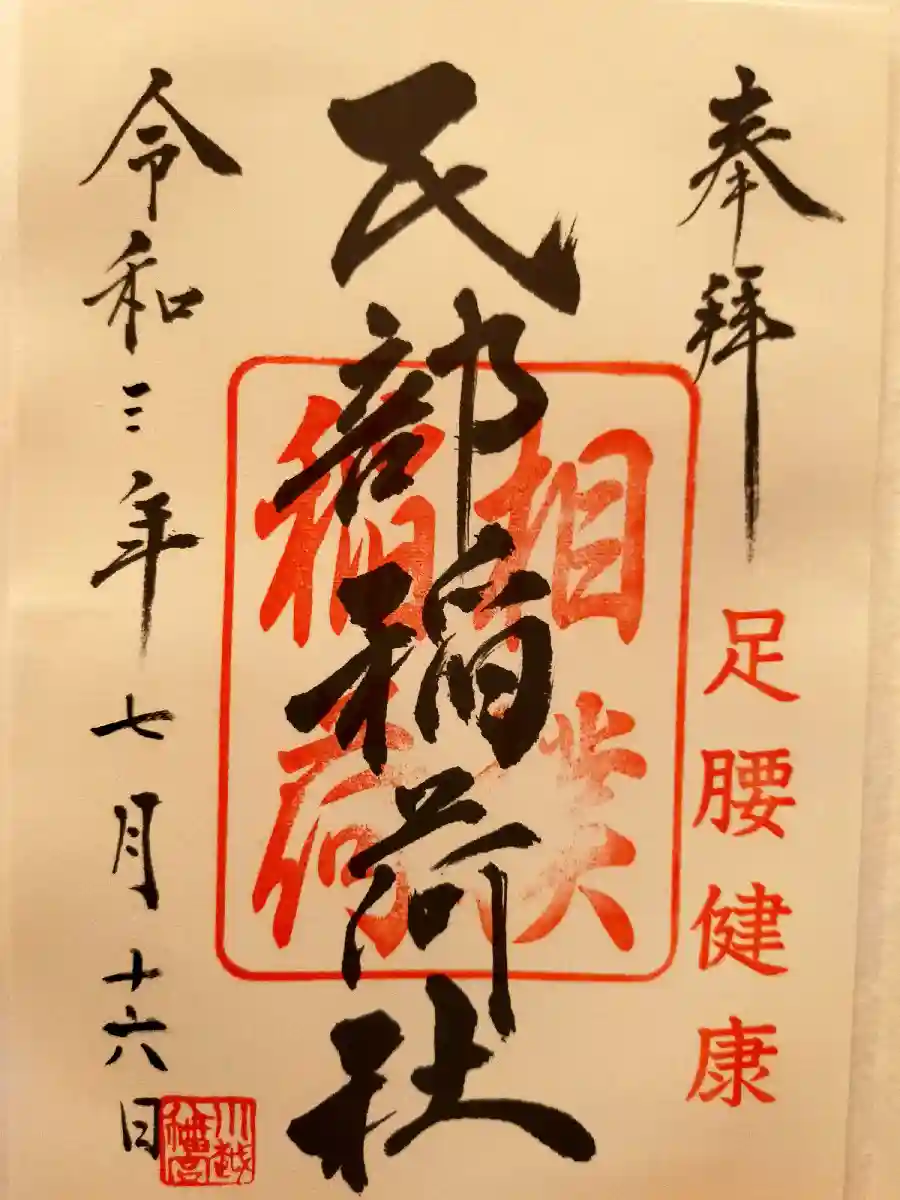 奉拝
足腰健康
民部稲荷社
相撲稲荷
令和三年七月十六日
川越八幡宮